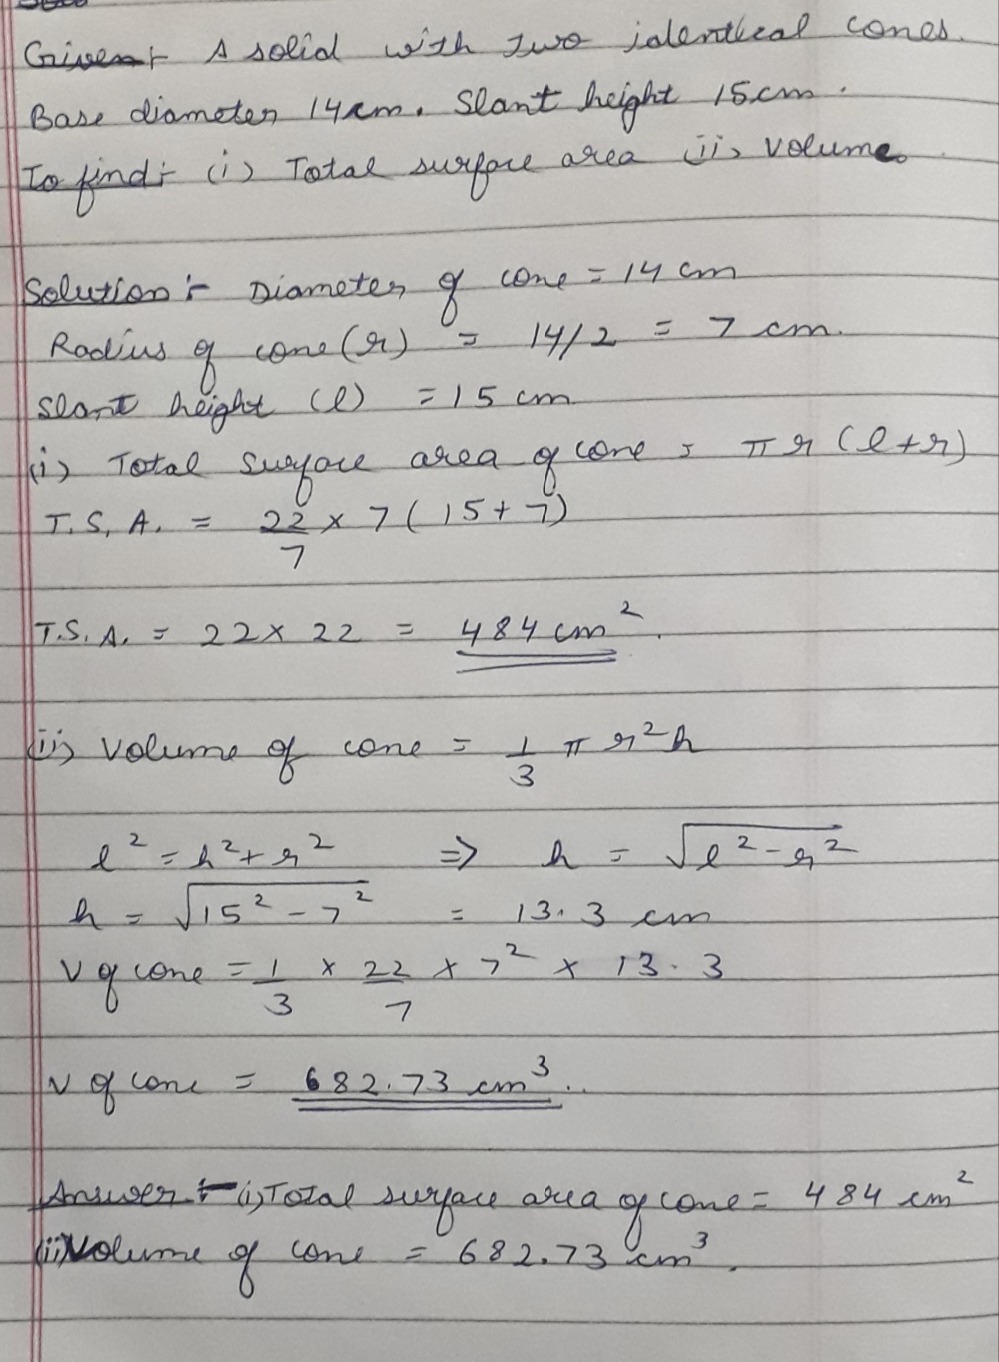 Given:- A solid with two identical cones.
Base diameter 14cm. Slant height 15cm.
To find:- (i) Total surface area (ii) Volume.
Solution:- Diameter of cone = 14 cm
Radius of cone (r) = 14/2 = 7 cm.
Slant height (l) = 15 cm
(i) Total surface area of cone = πr(l+r)
T.S.A. = 22/7 × 7 (15+7)
T.S.A. = 22 × 22 = 484 cm².
(ii) Volume of cone = 1/3 πr²h
l² = h² + r² ⇒ h = √(l² - r²)
h = √(15² - 7²) = 13.3 cm
V of cone = 1/3 × 22/7 × 7² × 13.3
V of cone = 682.73 cm³.
Answer:- (i) Total surface area of cone = 484 cm²
(ii) Volume of cone = 682.73 cm³.